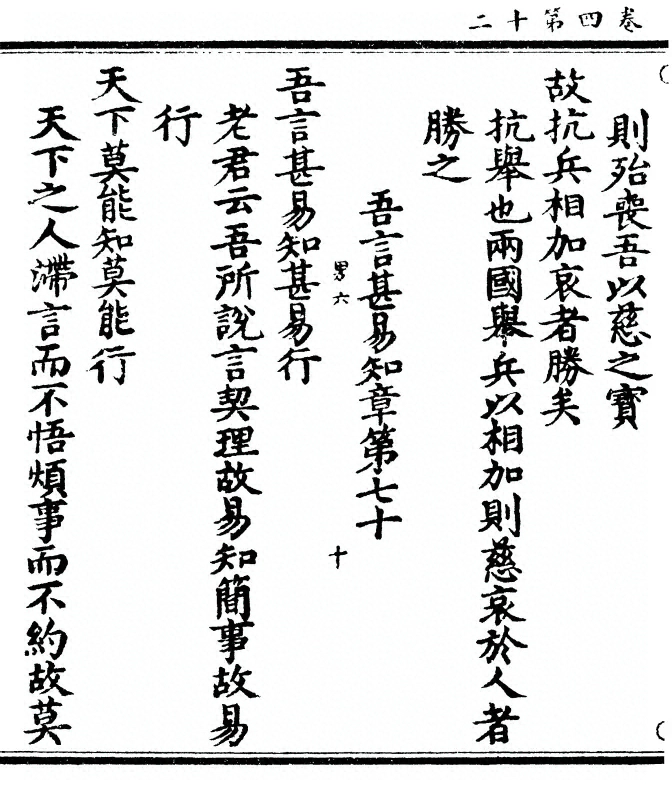 卷四第十二
則殆喪吾以慈之寶
故抗兵相加哀者勝矣
抗舉也兩國舉兵以相加則慈哀於人者
勝之
吾言甚易知章第七十
男六
十
吾言甚易知甚易行
老君云吾所說言契理故易知簡事故易
行
天下莫能知莫能行
天下之人滯言而不悟煩事而不約故莫